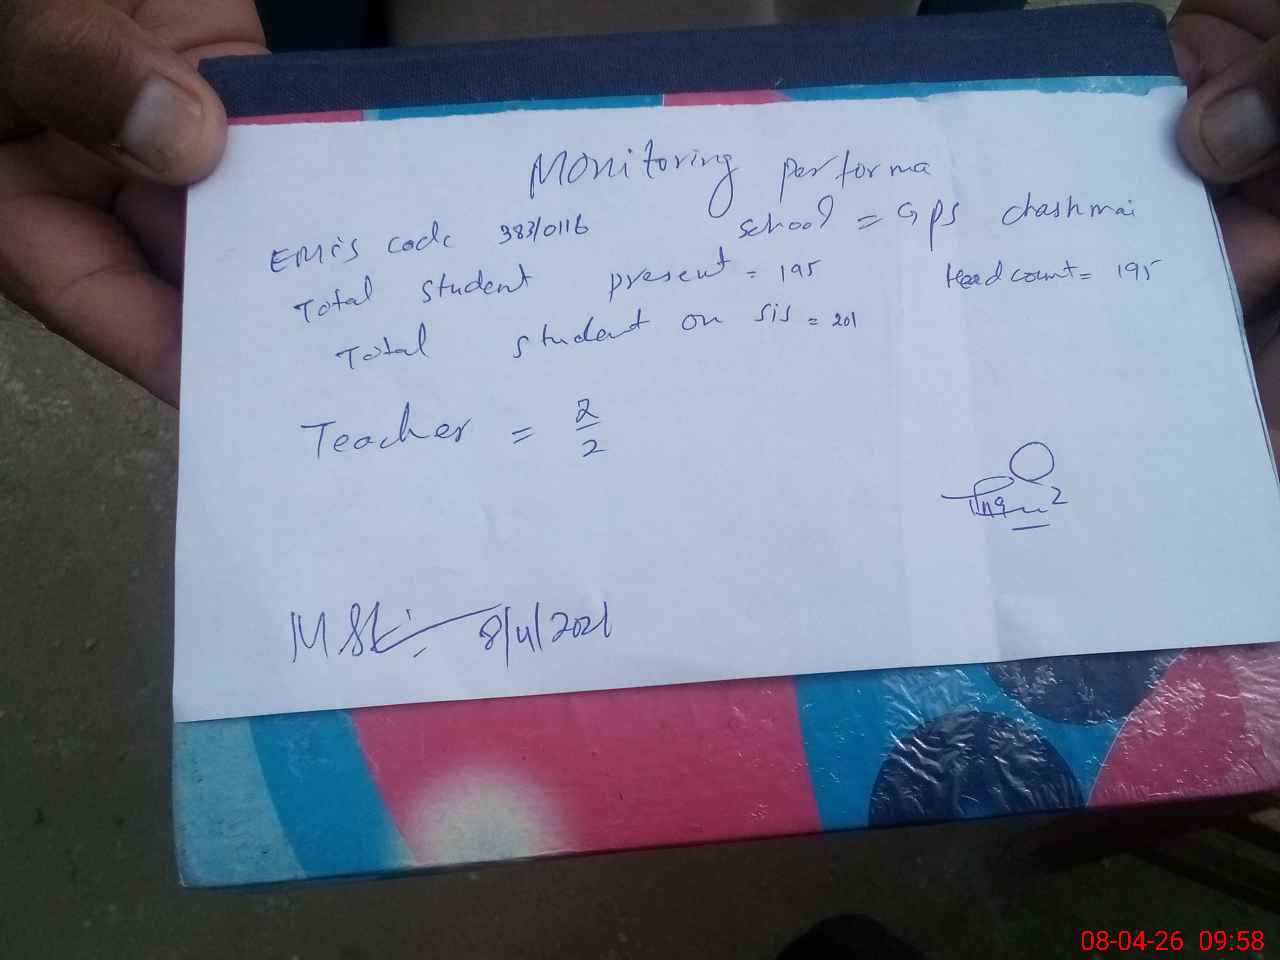 Monitoring performa
EMIS code 38310116 school = GPS chashmai
Total student present = 195 Head count = 195
Total student on sis = 201
Teacher = 2/2
8/4/2021
08-04-26 09:58